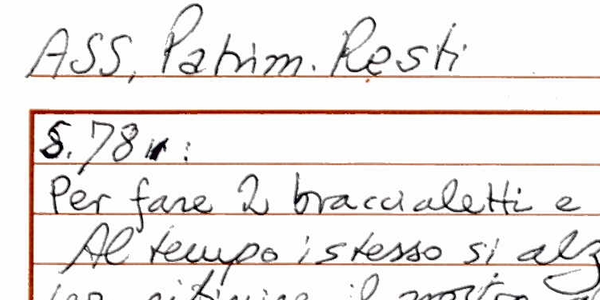 ASS, Patrim. Resti
S. 78r:
Per fare 2 braccialetti e
Al tempo istesso si alz
il mostro